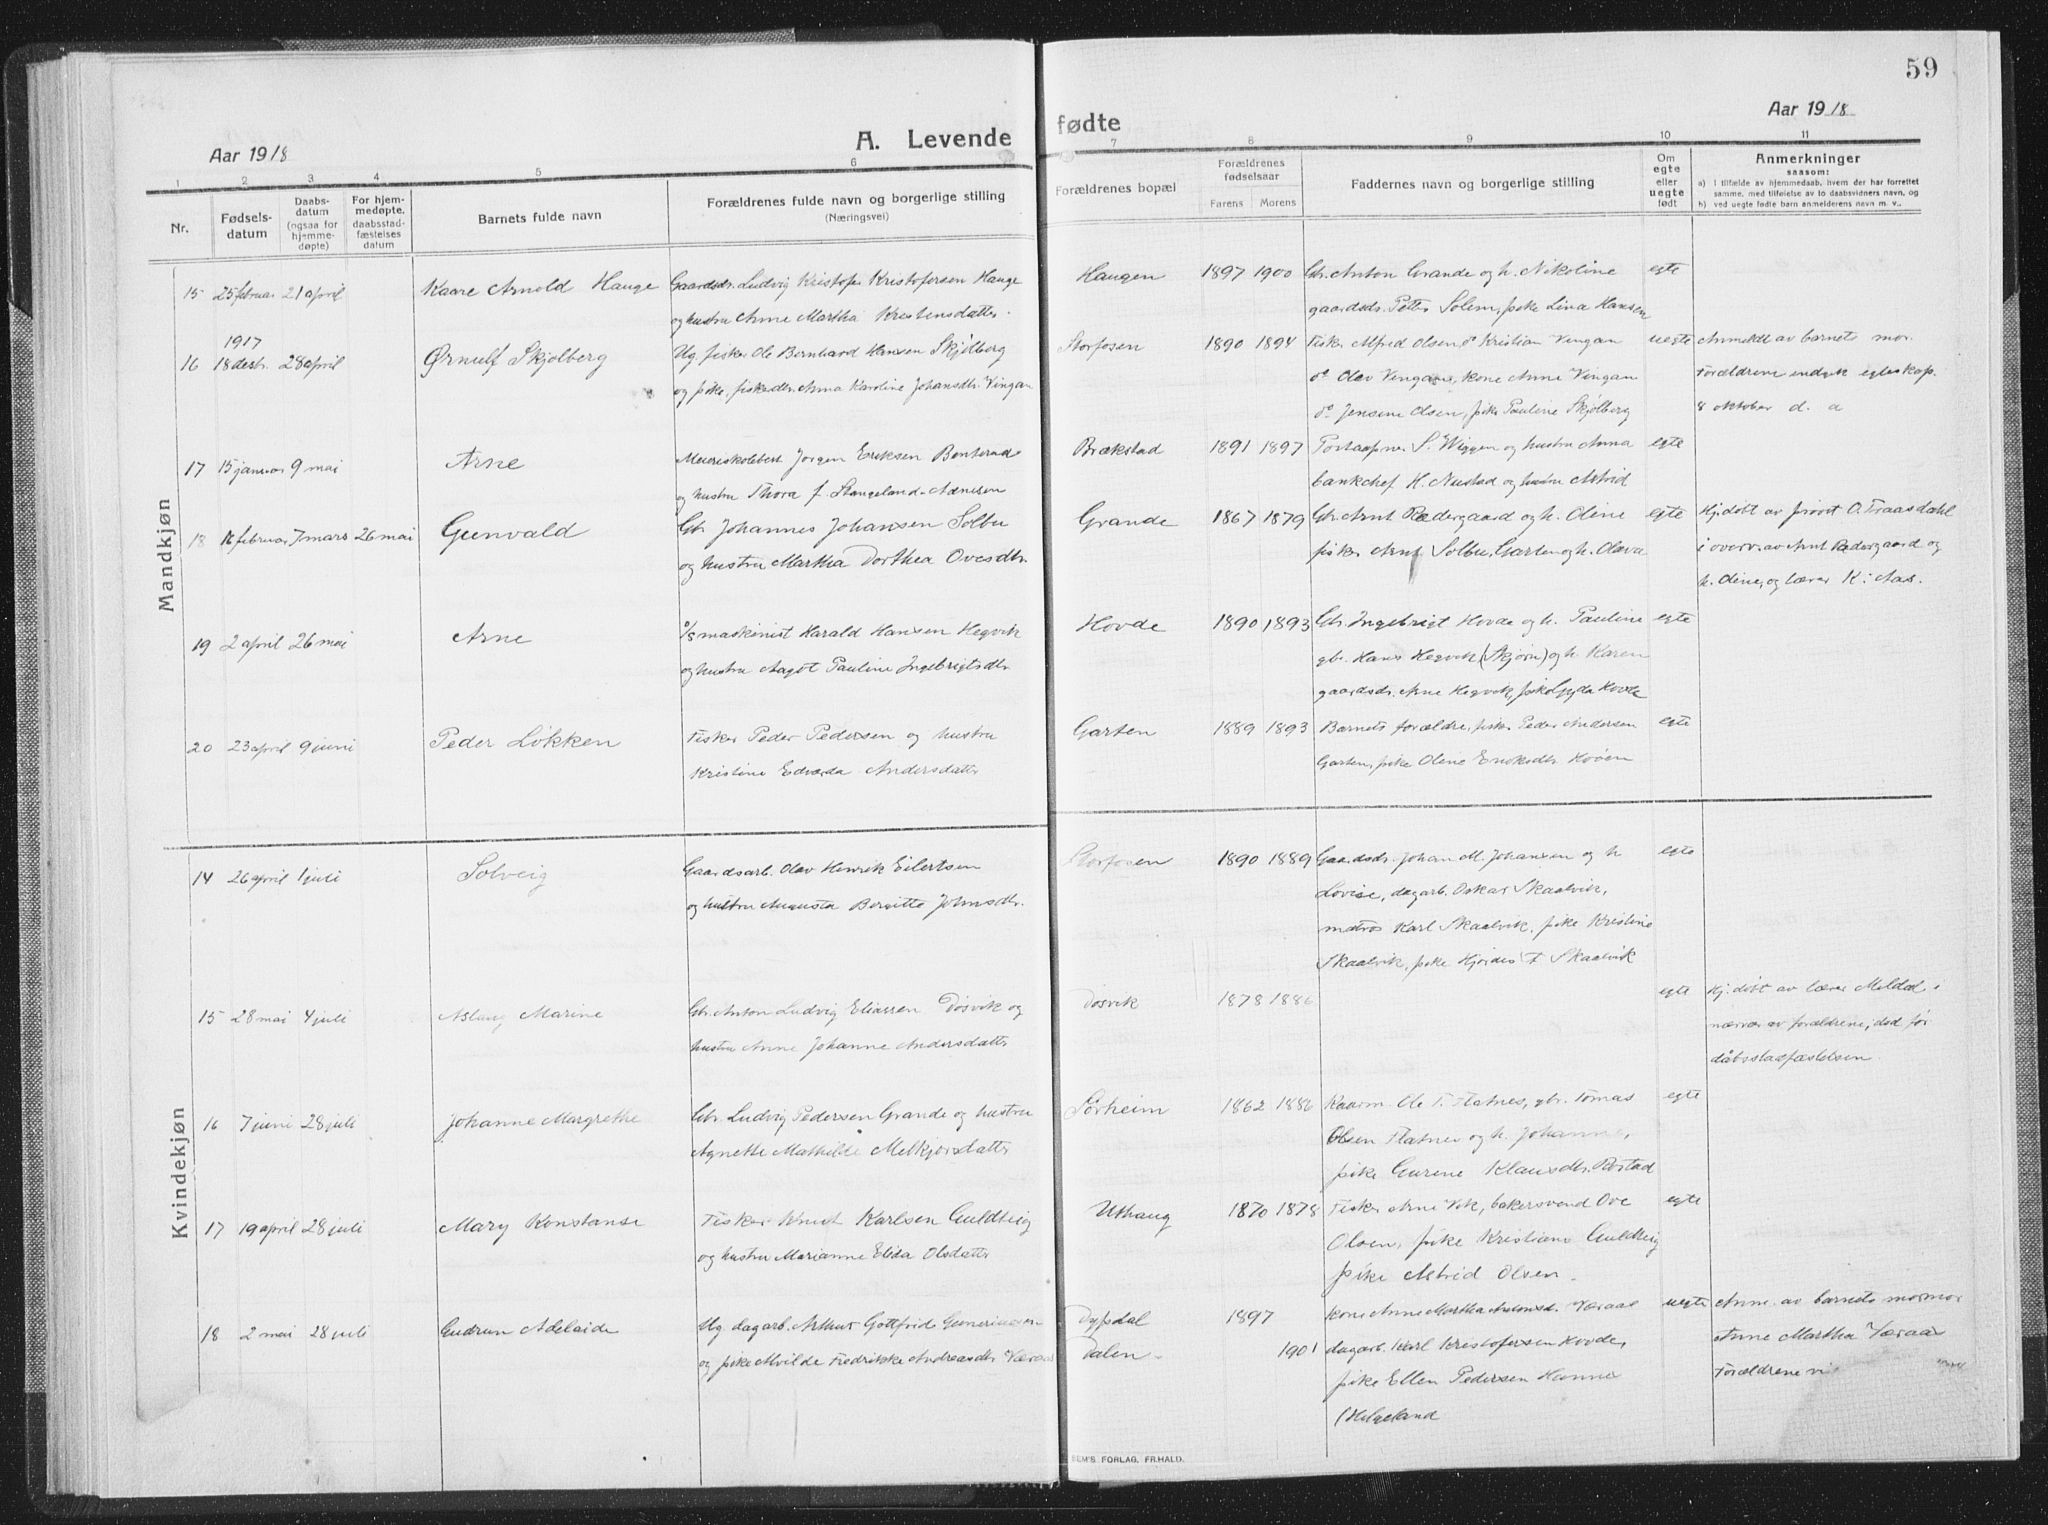 59
Aar 1918
A. Levende fødte
Aar 1918
1 2 3 4 5 6 7 8 9 10 11
Nr.
Fødsels-
datum
Daabs-
datum
(ogsaa for
hjemme-
døpte)
For hjem-
medøpte,
daabsstad-
fæstelses
datum
Barnets fulde navn
Forældrenes fulde navn og borgerlige stilling
(Næringsvei)
Forældrenes bopæl
Forældrenes
fødselsaar
Farens Morens
Faddernes navn og borgerlige stilling
Om
egte
eller
uegte
født
Anmerkninger
saasom:
a) I tilfælde av hjemmedaab, hvem der har forrettet
samme, med tilføielse av to daabsvidners navn, og
b) ved uegte fødte børn anmelderens navn m. v..
Mandkjøn
15 25 februar 21 april Kaare Arnold Hauge Gaardsdr. Ludvig Kristofer Kristofersen Hauge Haugen 1897 1900 Gbr. Anton Grande og h. Nikoline egte
og hustru Anne Martha Kristensdatter. gaardsdr. Petter Solem, pike Lina Hansen
1917
16 18 destr. 28 april Ørnulf Skjølberg Ug. fisker Ole Bernhard Hansen Skjølberg Storfosen 1890 1894 Fisker Alfred Olsen, do Kristian Vingan uegte Anmeldt av barnets mor.
og pike, fiskerdtr. Anna Karoline Johansdtr. Vingan do Olav Vingan, kone Anne Vingan Forældrene indgik egteskap
do Jensine Olsen, pike Pauline Skjølberg 8 oktober d. a
17 15 januar 9 mai Arne Meieriskolebest. Jørgen Eriksen Brækstad 1891 1897 S. Wiggen og hustru Anna egte
og hustru Thora f. Stangeland bankchef K. Nustad og hustru Astrid
18 16 februar 7 mars 26 mai Gunvald Gbr. Johannes Johansen Solbu Grande 1867 1879 Gbr. Arnt Rædergaard og h. Oline egte Hj.døbt av provst O. Traasdahl
og hustru Martha Dorthea Ovesdtr. fisker Arnt Solbu, Garten og h. Olava i overv. av Arnt Rædergaard og
h. Oline, og lærer K. Aas.
19 2 april 26 mai Arne maskinist Harald Hansen Hegvik Hovde 1890 1893 Gbr. Ingebrigt Hovde og h. Pauline egte
og hustru Aagot Pauline Ingebrigtsdtr. gbr. Hans Hegvik (Skjørn) og h. Karen
gaardsdr. Arne Hegvik, pike Hovde
20 23 april 9 juni Peder Løkken Fisker Peder Pedersen og hustru Garten 1889 1893 Barnets forældre, fisker Peder Andersen egte
Kristine Edvarda Andersdatter Garten, pike Oline
Kvindekjøn
14 26 april 1 juli Solveig Gaardsarb. Olav Henrik Eilertsen Storfosen 1890 1889 Gaardsdr. Johan M. Johansen og h egte
og hustru Augusta Bergitte Johnsdtr. Lovise, dagarb. Oskar Skaalvik,
matros Karl Skaalvik, pike Kristine
Skaalvik, pike Hjørdis F Skaalvik
15 28 mai 4 juli Aslaug Marine Gbr. Anton Ludvig Eliassen Døsvik og Døsvik 1878 1886 egte Hj. døbt av lærer Meldal i
hustru Anne Johanne Andersdatter nærvær av forældrene; død før
dåbsstadfæstelsen.
16 7 juni 28 juli Johanne Margrethe Gbr. Ludvig Pedersen Grande og hustru Sørheim 1862 1886 Kaarm. Ole T. Flatnes, gbr. Tomas egte
Agnette Mathilde Melkjorsdatter Olsen Flatnes og h. Johanne,
pike Gurine Klausdtr. Røstad
17 19 april 28 juli Mary Konstanse Fisker Knut Karlsen Guldteig Uthaug 1870 1878 Fisker Arne Vik, bakersvend Ove egte
og hustru Marianne Elida Olsdatter Olsen, pike Kristiane Guldteig
pike Astrid Olsen.
18 2 mai 28 juli Gudrun Adelaide Ug. dagarb. Arthur Gottfride Dypdal 1897 Kone Anne Martha Væraas uegte Anm. av barnets mormor
og pike Alvilde Fredrikke Andreasdtr. Væraas Dalen. 1901 dagarb. Karl Kristofersen Hovde, Anne Martha Væraas
pike Ellen Pedersen Forældrene
(Helgeland
SEM'S FORLAG, FR.HALD.